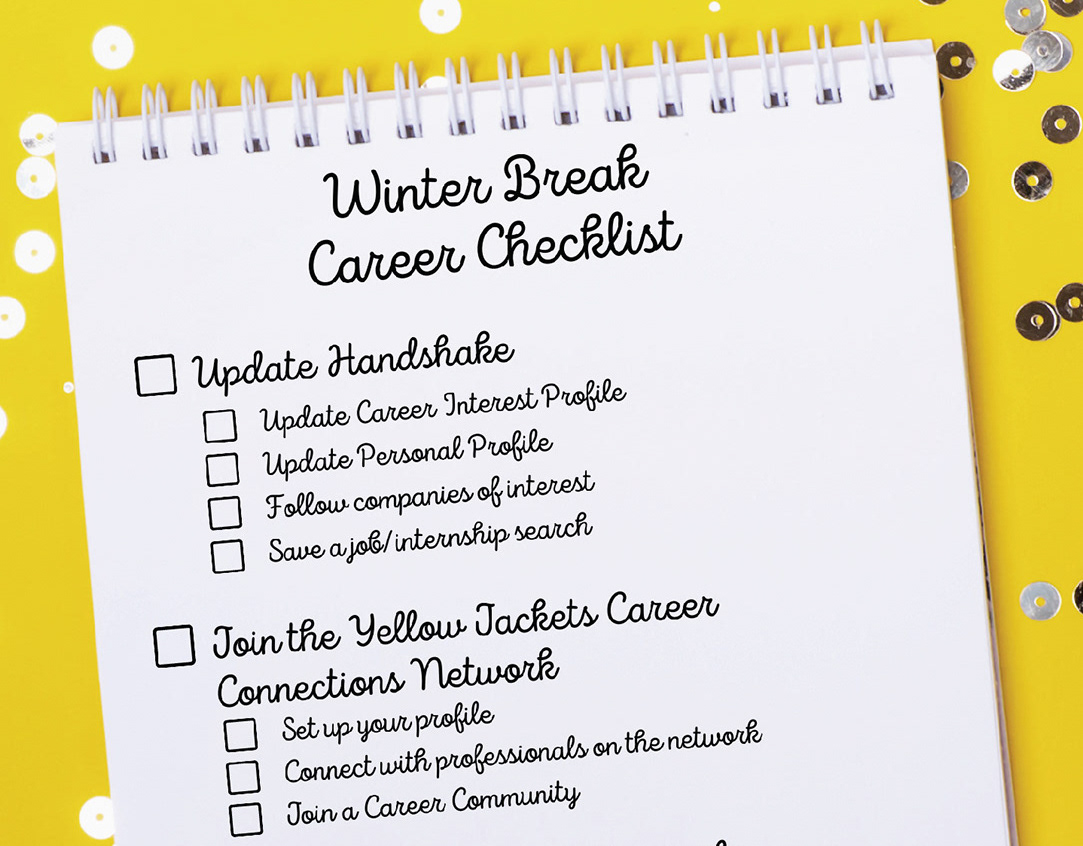 Winter Break
Career Checklist
Update Handshake
Update Career Interest Profile
Update Personal Profile
Follow companies of interest
Save a job/internship search
Join the Yellow Jackets Career
Connections Network
Set up your profile
Connect with professionals on the network
Join a Career Community